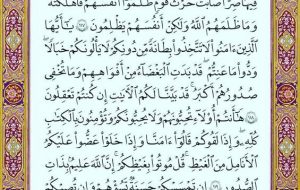 فِيهَا صِرٌّ أَصَابَتْ حَرْثَ قَوْمٍ ظَلَمُوٓا۟ أَنفُسَهُمْ فَأَهْلَكَتْهُ
وَمَا ظَلَمَهُمُ ٱللَّهُ وَلَٰكِنْ أَنفُسَهُمْ يَظْلِمُونَ ١١٧ يَٰٓأَيُّهَا
ٱلَّذِينَ ءَامَنُوا۟ لَا تَتَّخِذُوا۟ بِطَانَةً مِّن دُونِكُمْ لَا يَأْلُونَكُمْ خَبَالًا
وَدُّوا۟ مَا عَنِتُّمْ قَدْ بَدَتِ ٱلْبَغْضَآءُ مِنْ أَفْوَٰهِهِمْ وَمَا تُخْفِى
صُدُورُهُمْ أَكْبَرُ قَدْ بَيَّنَّا لَكُمُ ٱلْـَٔايَٰتِ إِن كُنتُمْ تَعْقِلُونَ
١١٨ هَٰٓأَنتُمْ أُو۟لَآءِ تُحِبُّونَهُمْ وَلَا يُحِبُّونَكُمْ وَتُؤْمِنُونَ بِٱلْكِتَٰبِ
كُلِّهِۦ وَإِذَا لَقُوكُمْ قَالُوٓا۟ ءَامَنَّا وَإِذَا خَلَوْا۟ عَضُّوا۟ عَلَيْكُمُ
ٱلْأَنَامِلَ مِنَ ٱلْغَيْظِ قُلْ مُوتُوا۟ بِغَيْظِكُمْ إِنَّ ٱللَّهَ عَلِيمٌۢ بِذَاتِ
ٱلصُّدُورِ ١١٩ إِن تَمْسَسْكُمْ حَسَنَةٌ تَسُؤْهُمْ وَإِن تُصِبْكُمْ